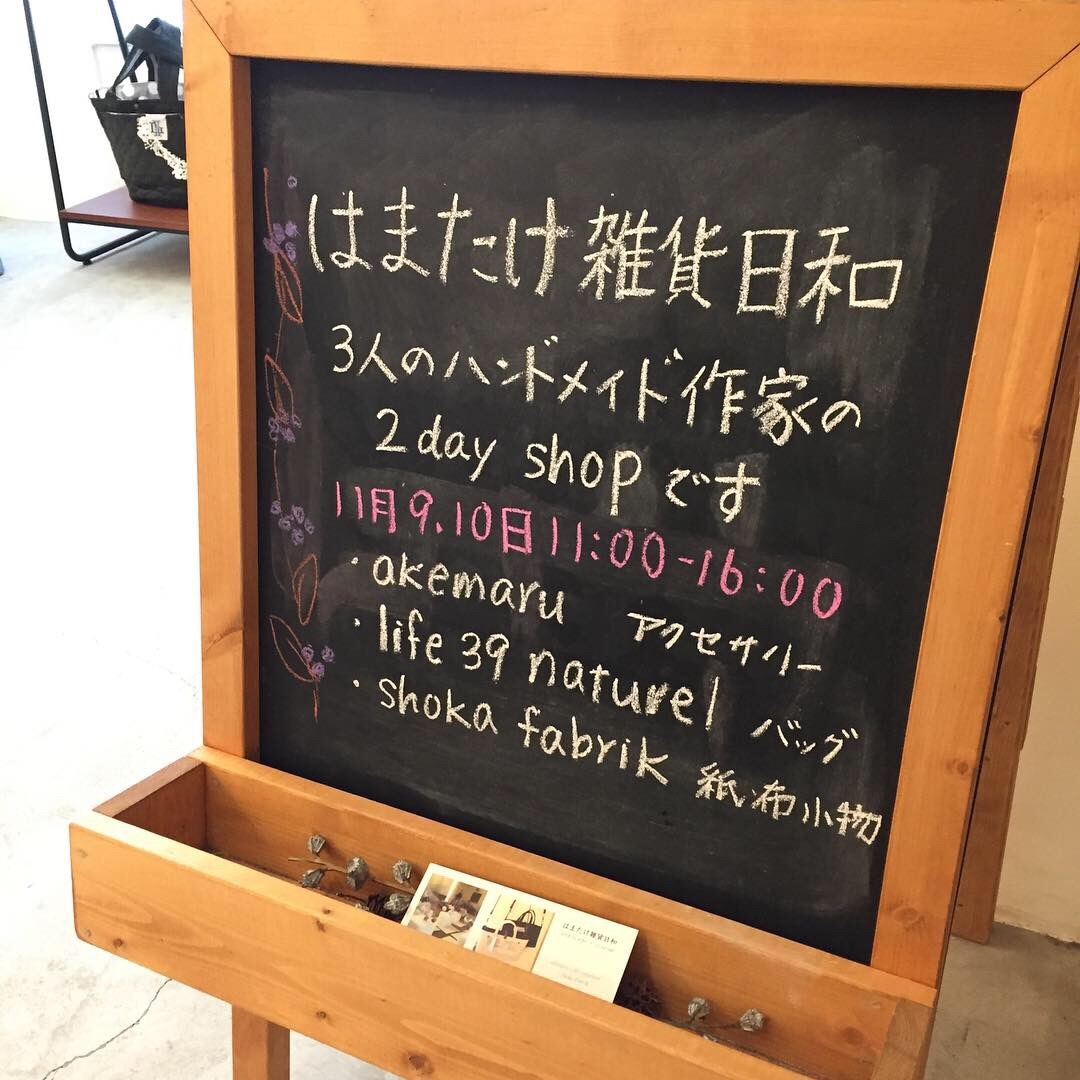 はまたけ雑貨日和
3人のハンドメイド作家の
2 day shop です
11月9.10日11:00-16:00
・akemaru アクセサリー
・life 39 naturel バッグ
・shoka fabrik 紙・布小物
はまたけ雑貨日和